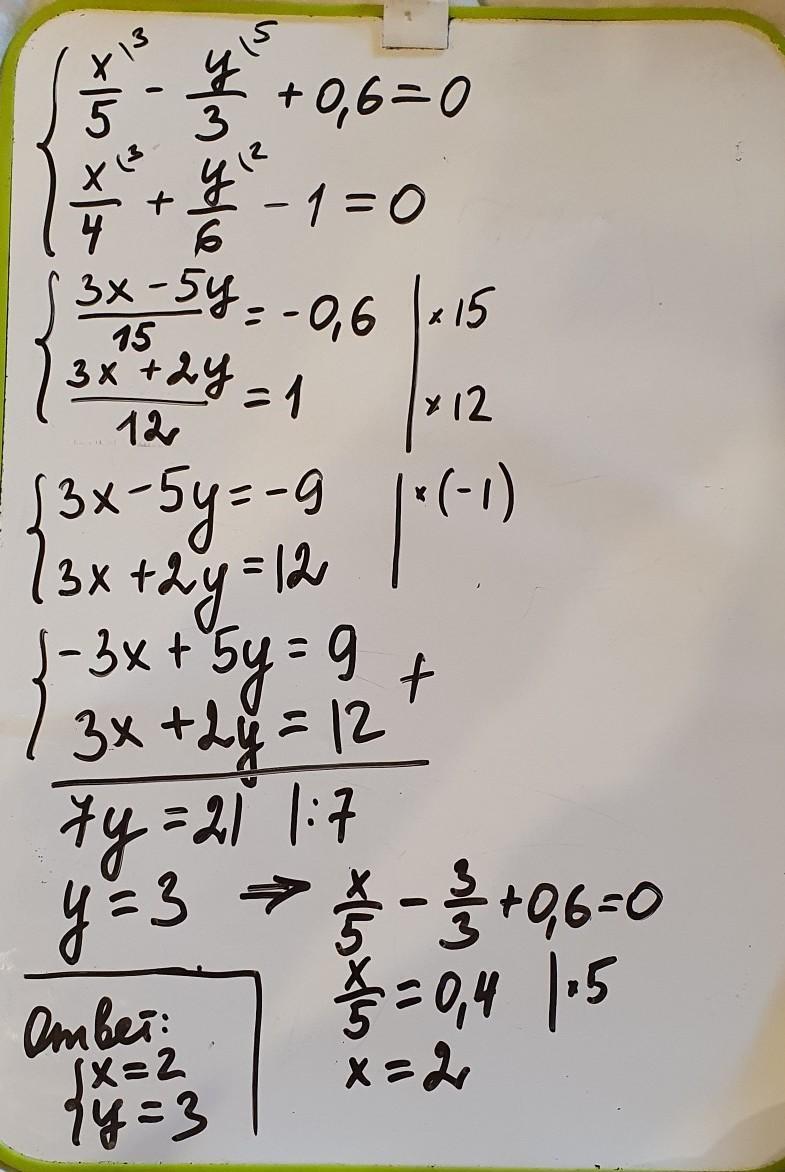 x\3/5 - y\5/3 + 0,6 = 0
x\3/4 + y\2/6 - 1 = 0
(3x - 5y)/15 = -0,6 | × 15
(3x + 2y)/12 = 1 | × 12
3x - 5y = -9 | × (-1)
3x + 2y = 12
-3x + 5y = 9 +
3x + 2y = 12
7y = 21 | : 7
y = 3 ⇒ x/5 - 3/3 + 0,6 = 0
x/5 = 0,4 | · 5
x = 2
Ответ:
x = 2
y = 3